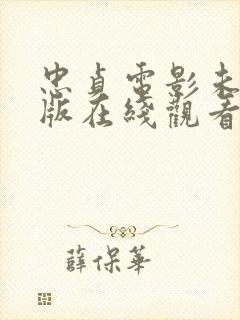 忠貞電影未
版在綫觀看
薛保華